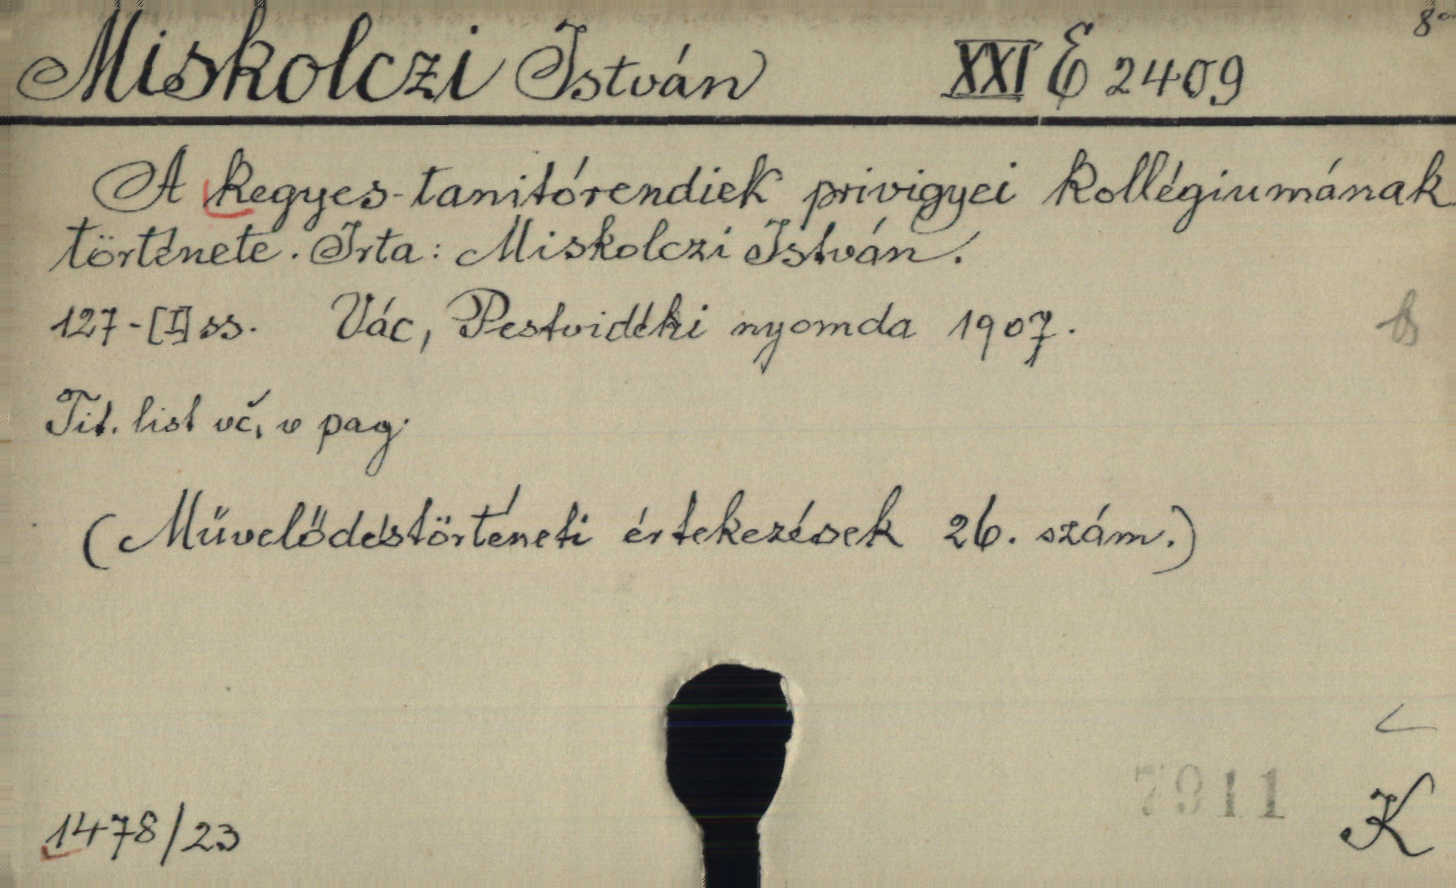 8°
Miskolczi István XXI E 2409
A kegyes-tanitórendiek privigyei kollégiumának
története. Irta: Miskolczi István.
127-[I] ss. Vác, Pestvidéki nyomda 1907.
Tit. list vč, v pag.
(Művelődéstörténeti értekezések 26. szám.)
7911
K
1478/23